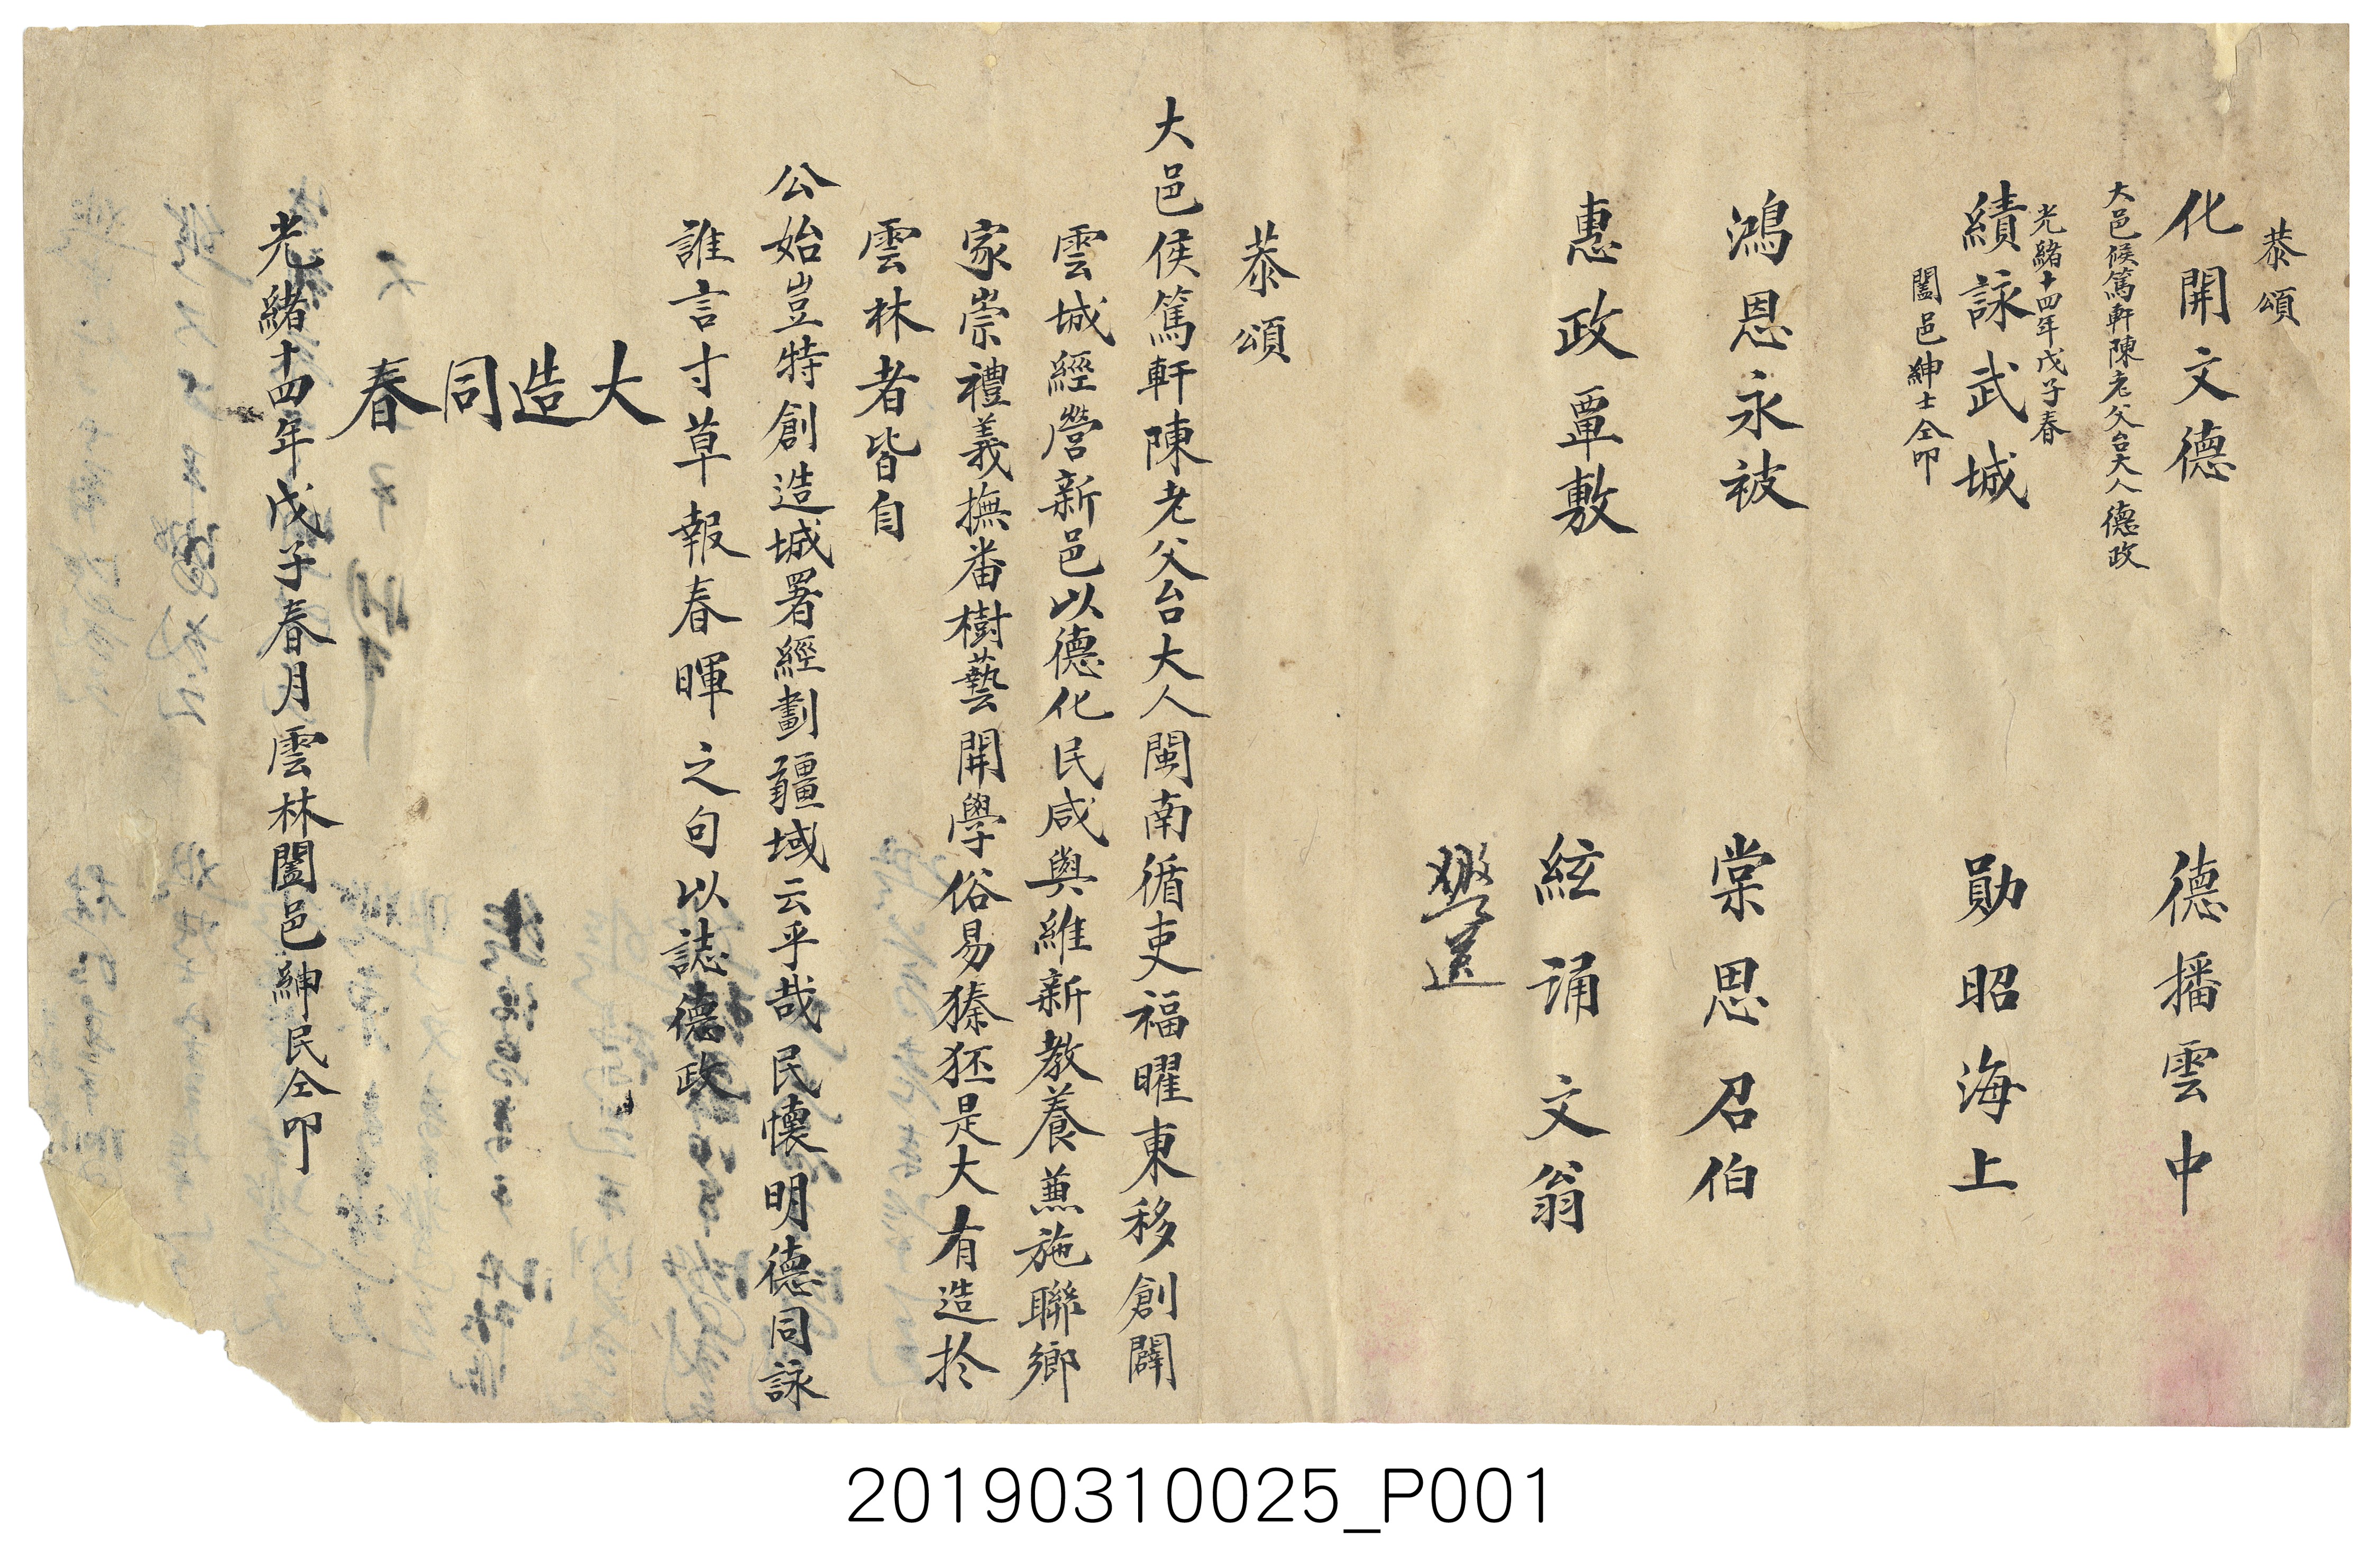 恭頌
化開文德　德播雲中
大邑候篤軒陳老父台大人德政
光緒十四年戊子春
績詠武城　勛昭海上
闔邑紳士仝叩
鴻恩永被　棠思召伯
惠政覃敷　絃誦文翁
恭頌
大邑侯篤軒陳老父台大人閩南循吏福曜東移創闢
雲城經營新邑以德化民咸與維新教養兼施聯鄉
家崇禮義撫番樹藝開學俗易獉狉是大有造於
雲林者皆自
公始豈特創造城署經劃疆域云乎哉民懷明德同詠
誰言寸草報春暉之句以誌德政
大造同春
光緒十四年戊子春月雲林闔邑紳民仝叩
20190310025_P001